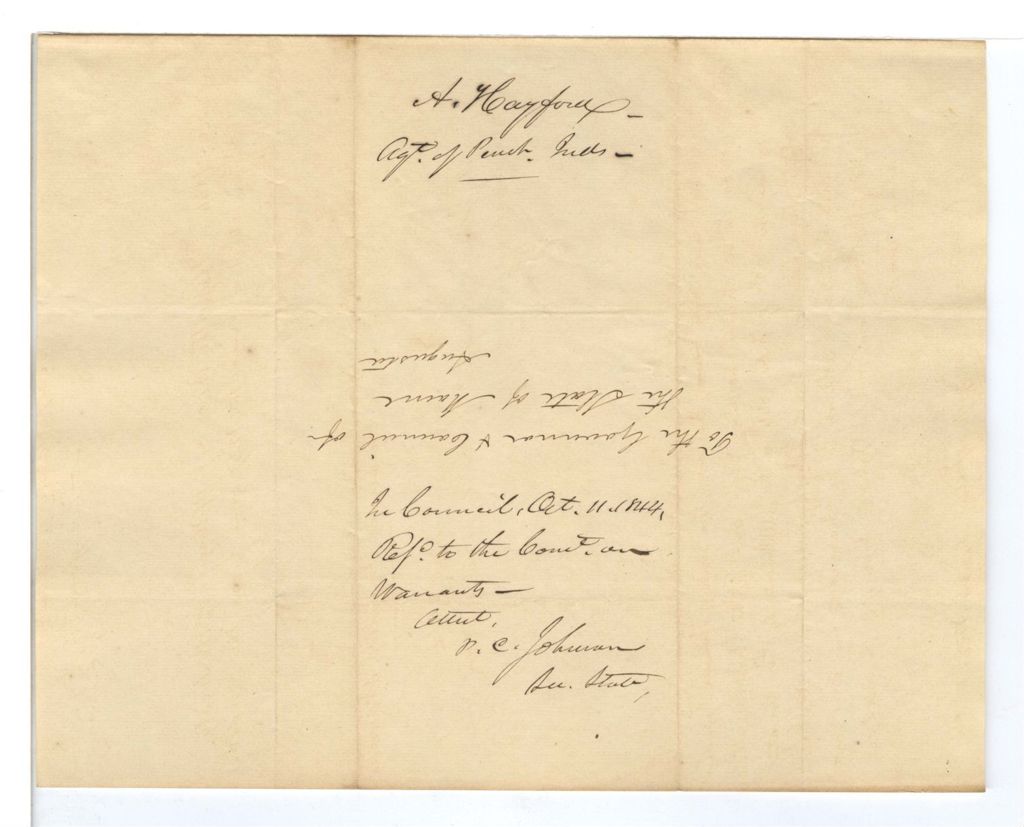 A. Hayford –
Agt. of Penob. Inds –
To the Governor & Council of
the State of Maine
Augusta
In Council, Oct. 11. 1844,
Refd. to the Comt. on
Warrants –
Attest,
P. C. Johnson
Sec. State,